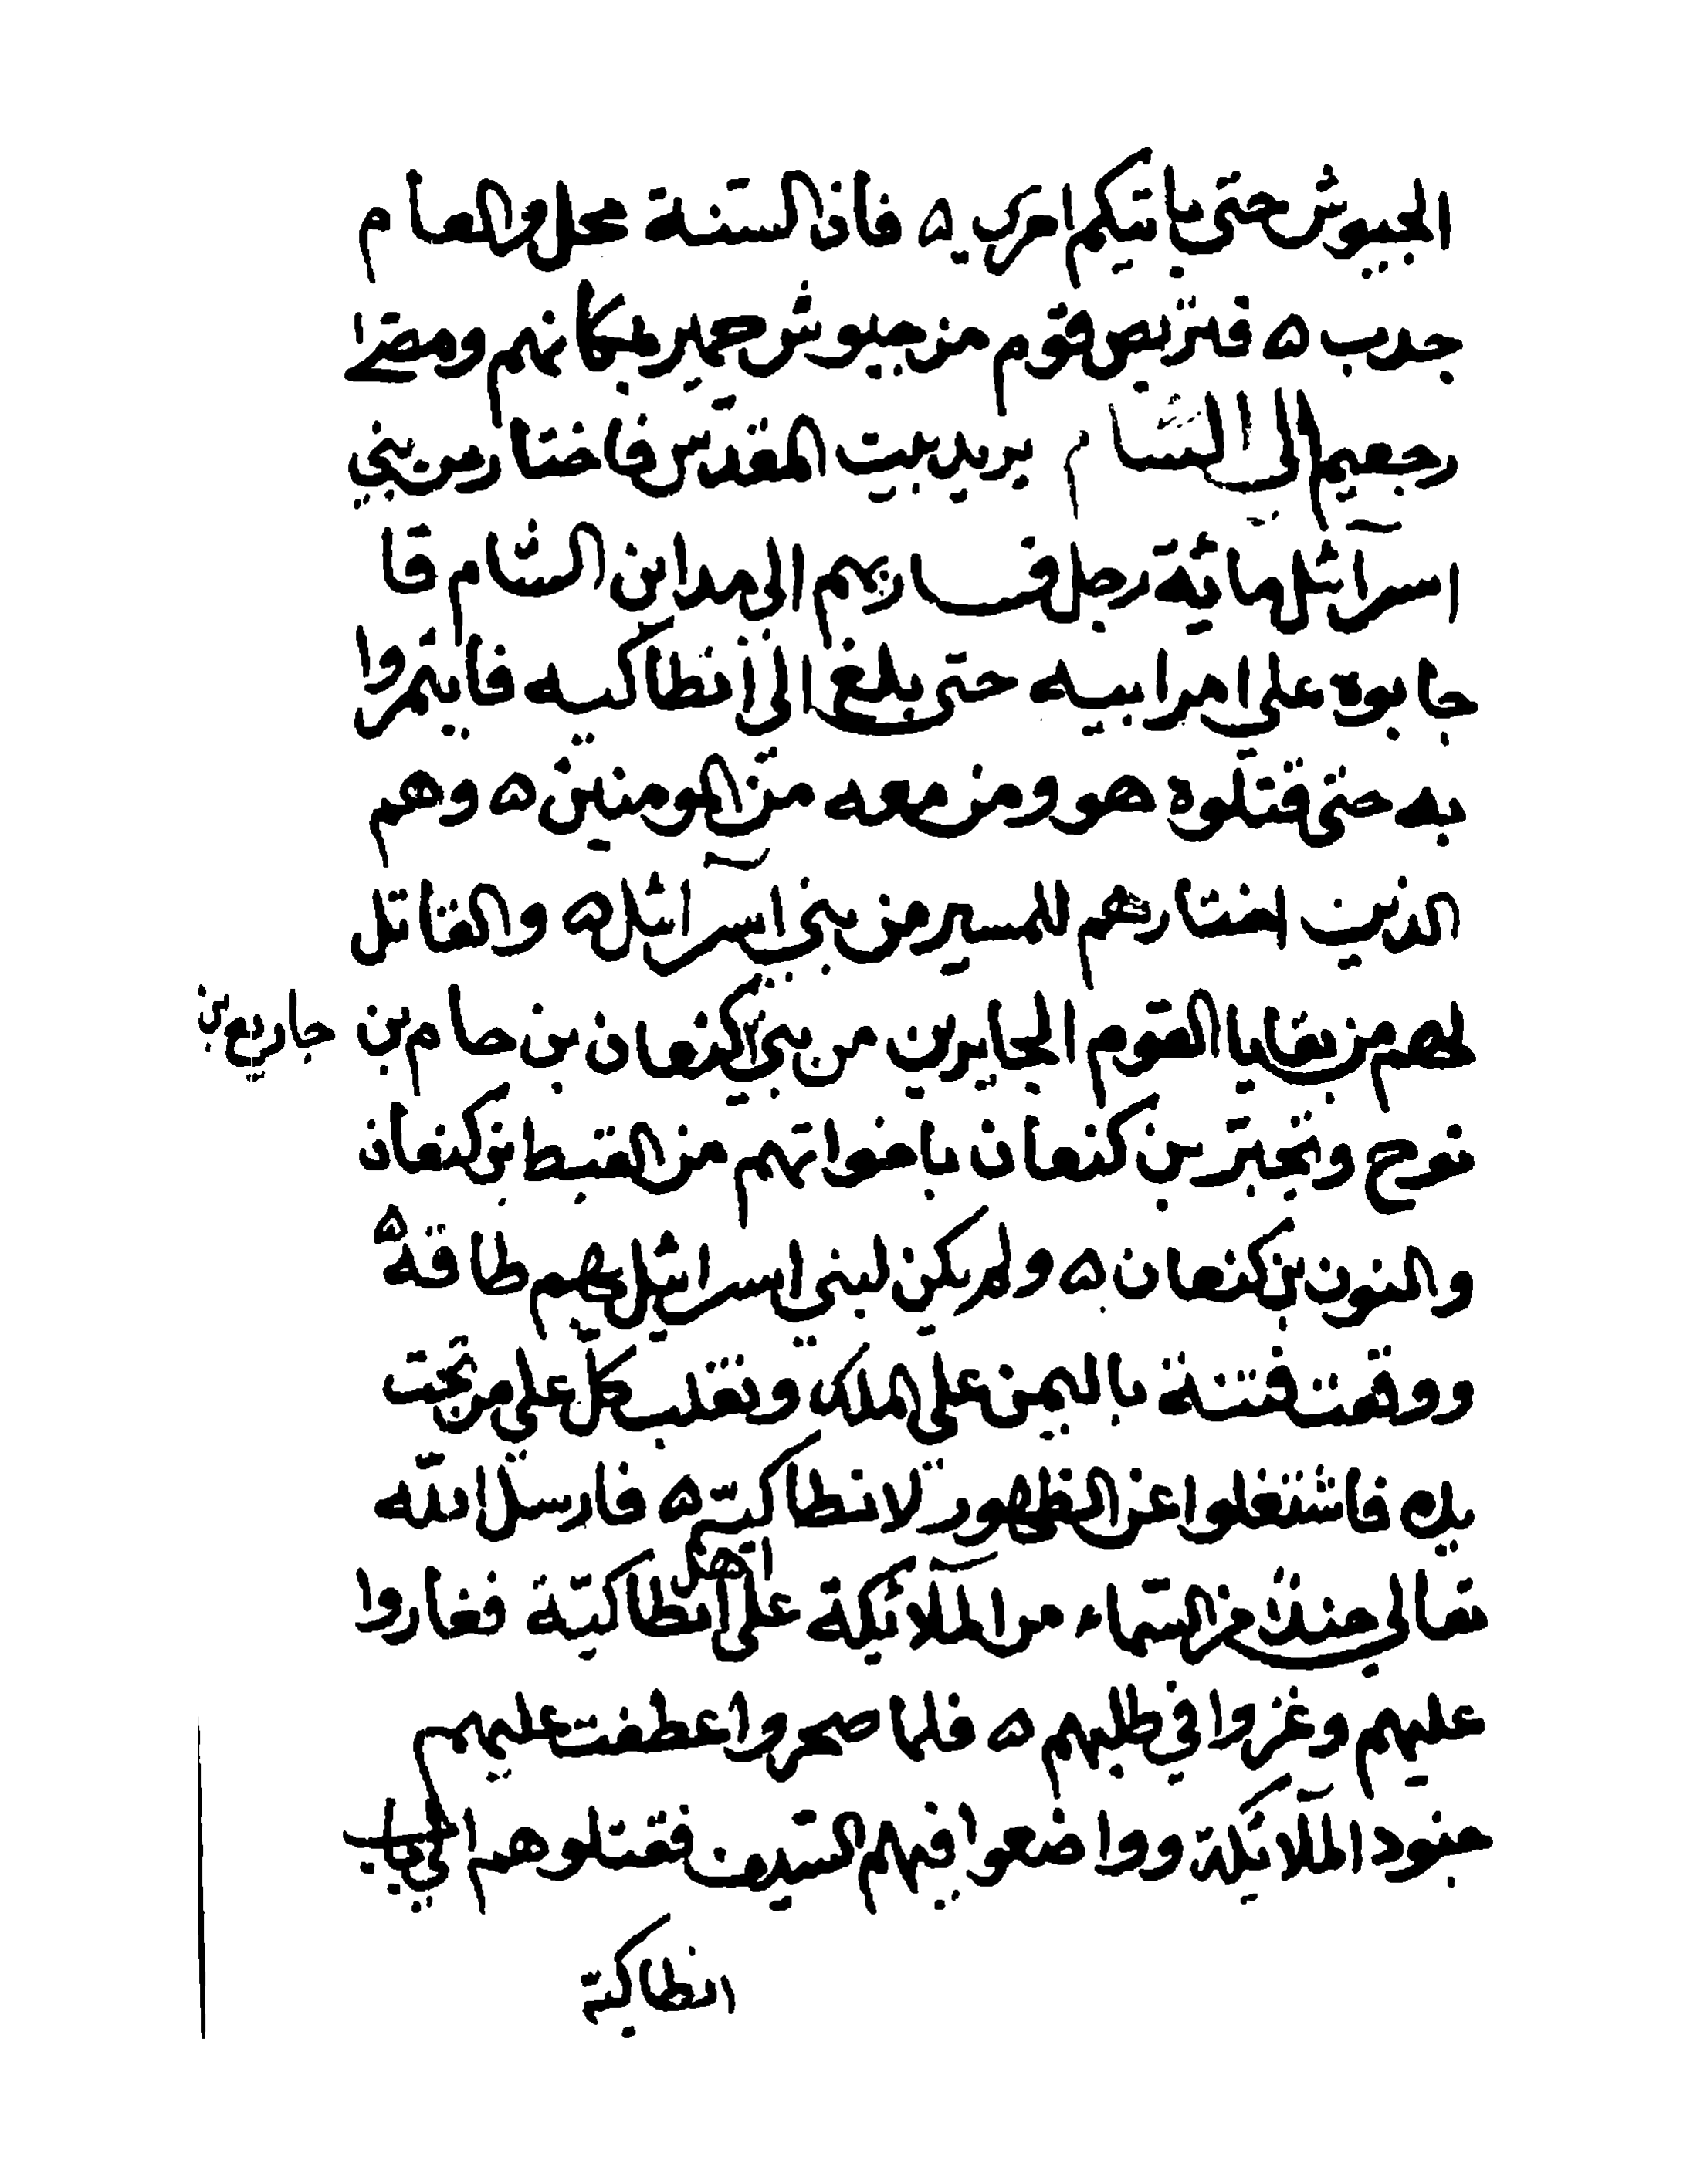 الجيوش حتى ياتيكم امري ه فان السنة محل والعام
جدب ه فتربص قوم من جيوش حمير مكانهم ومضى
رجعيم الى الشام يريد بيت المقدس فاختار من بني
اسرآئل مائة رجل فسار بهم الى مداين الشام فا
جابوه على امر ابيه حتى بلغ الى انطاكيه فايتمروا
به حتى قتلوه هو ومن معه من المومنين ه وهم
الذين اختارهم للمسير من بني اسرآئل ه والقاتل
لهم من بقايا القوم الجايرين من بني كنعان بن حام بن
نوح وتجبر بن كنعان باخواتهم من القبط بن كنعان
والنون بن كنعان ه ولم يكن لبني اسرائيل بهم طاقة ه
ووقعت فتنة باليمن على الملك وتغلب كل على من تحت
يده فاشتغلوا عن الظهور لانطاكية ه فارسل الله
تعالى جندا من السماء من الملآئكة على اهل انطاكية فغاروا
عليهم وغزوا في طلبهم ه فلما صحروا عطفت عليهم
جنود الملآئكة وواضعوا فيهم السيف فقتلوهم الى باب
انطاكية